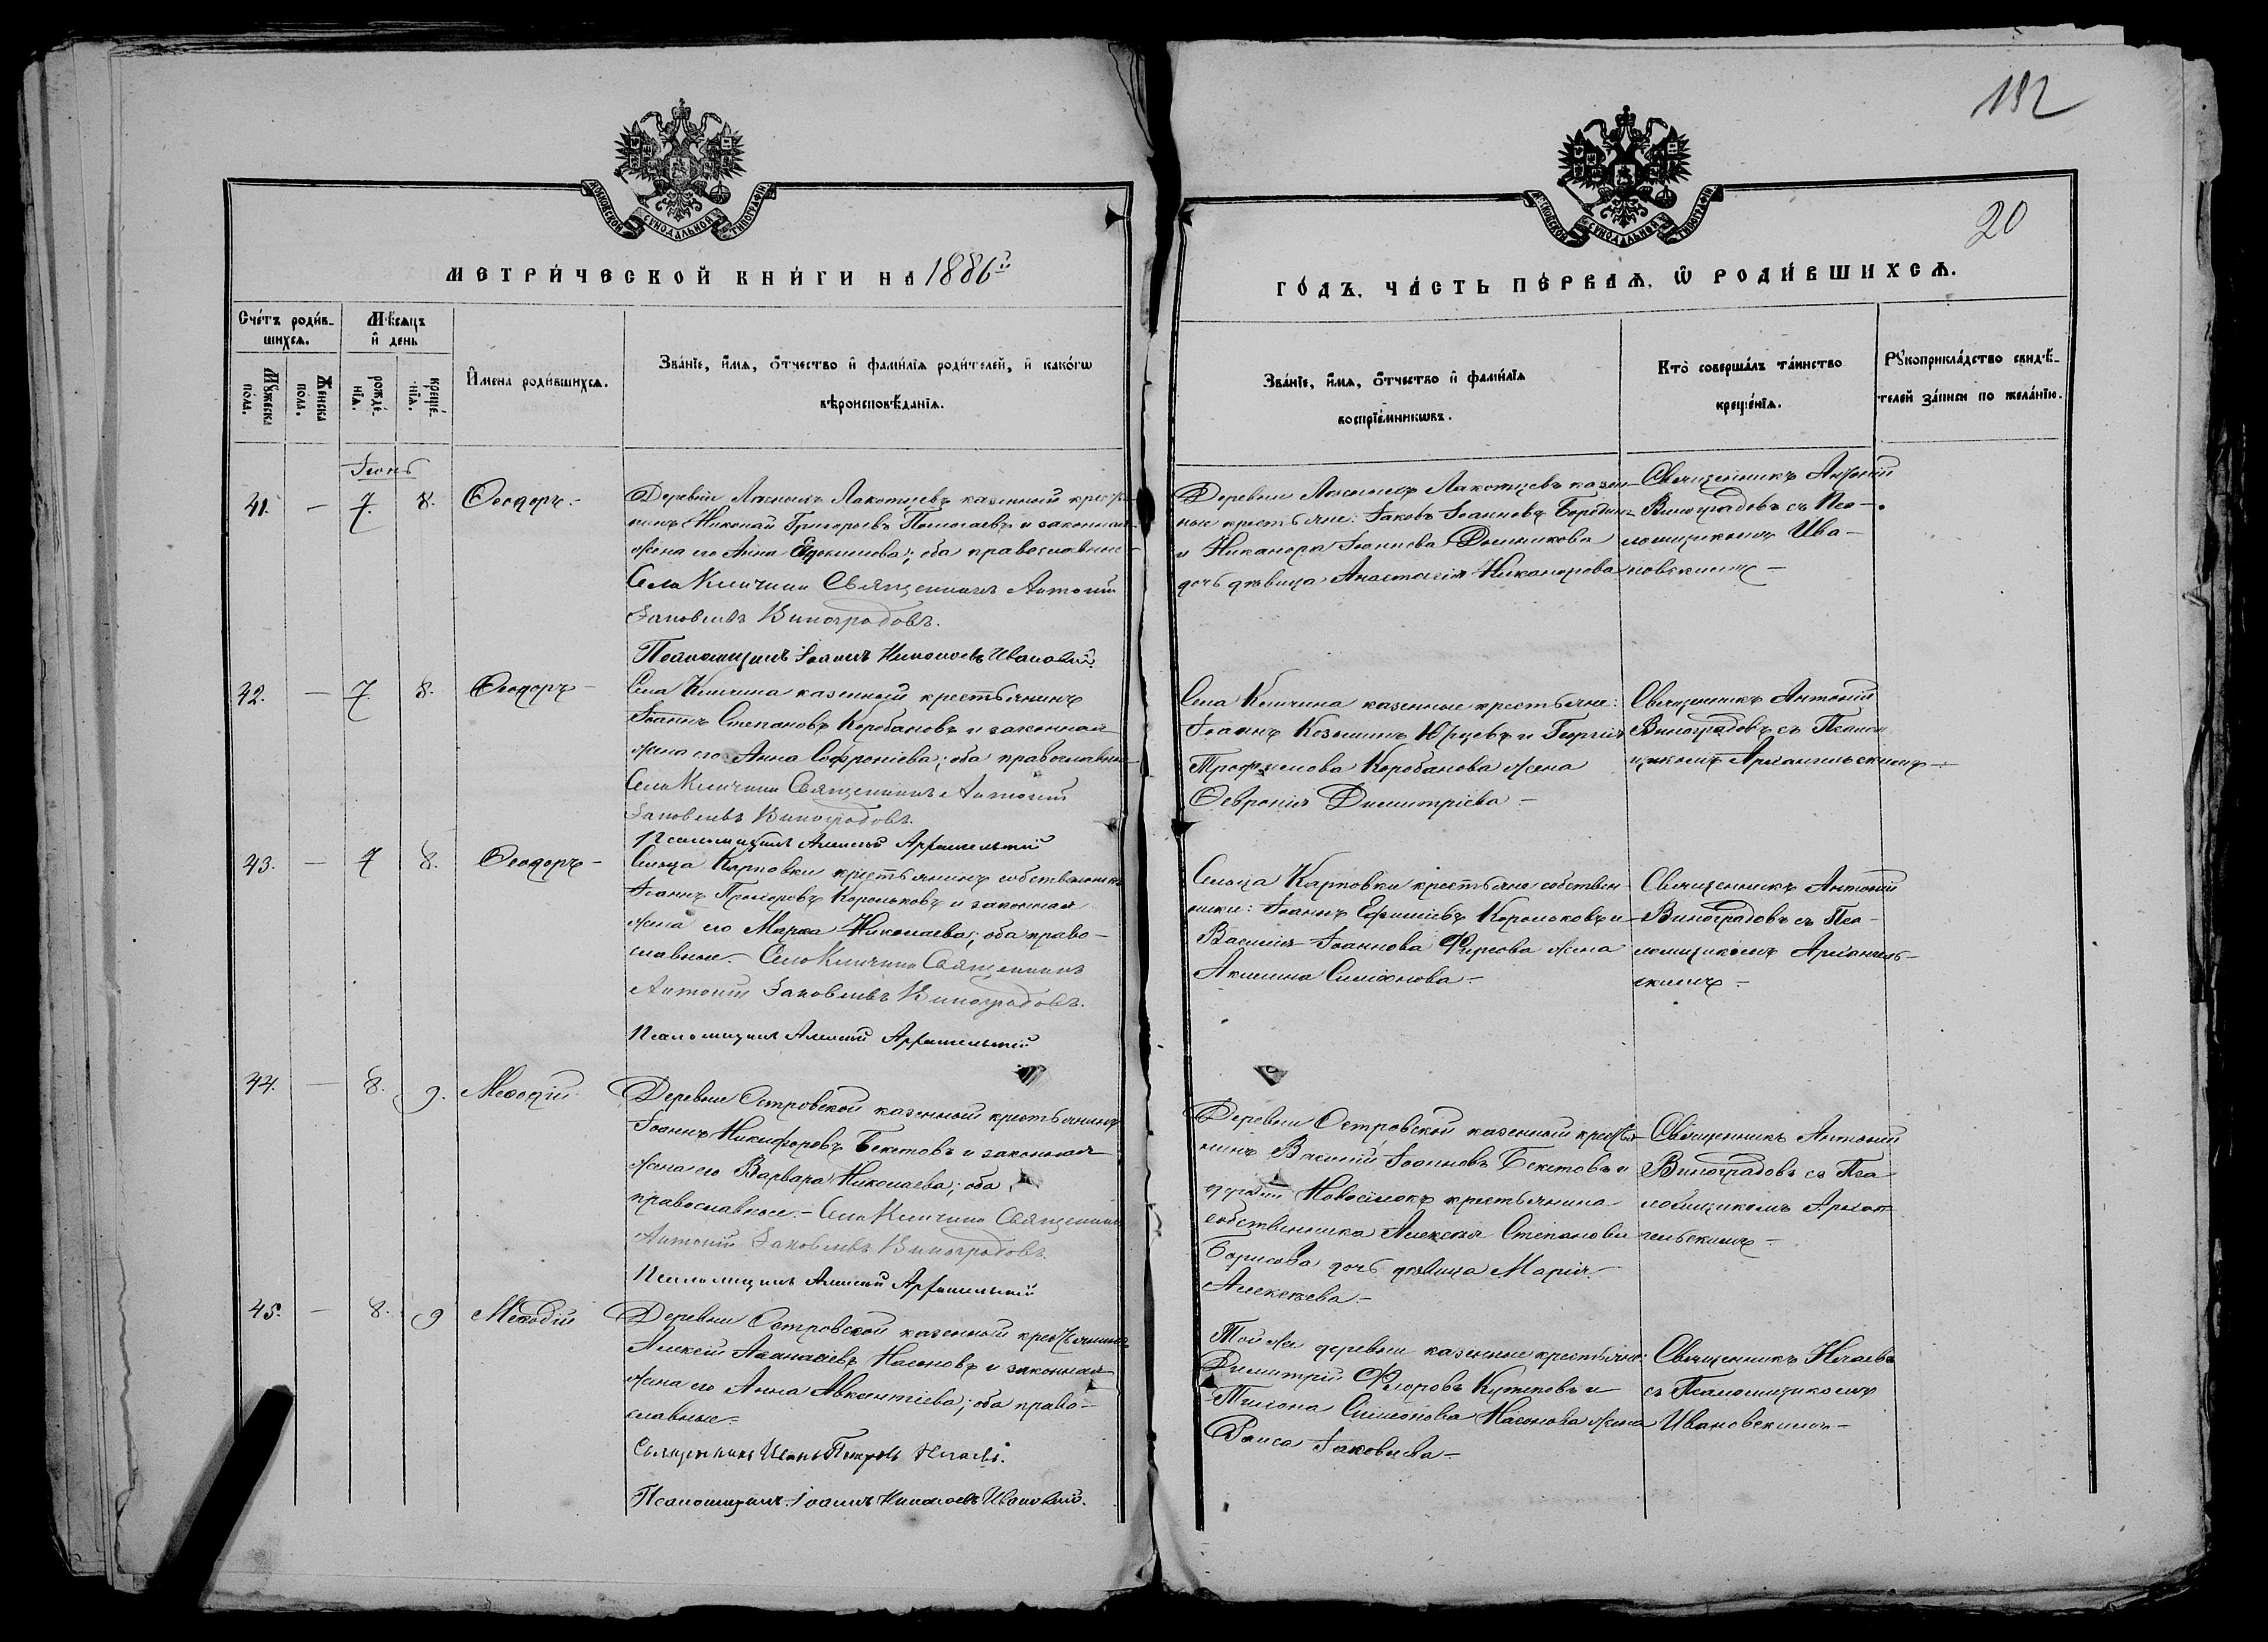 182
20
МОСКОВСКОЙ СѴНОДАЛЬНОЙ ТИПОГРАФІИ
МОСКОВСКОЙ СѴНОДАЛЬНОЙ ТИПОГРАФІИ
МЕТРИ́ЧЕСКОЙ КНИ́ГИ НА 1886й
ГО́ДЪ, ЧА́СТЬ ПЕ́РВАѦ, Ѡ РОДИ́ВШИХСѦ.
Сче́тъ роди́в-
шихсѧ.
Мѹжеска по́ла.
Женска по́ла.
Мѣ́сѧцъ
и҆ день
рожде́-
нїѧ.
креще́-
нїѧ.
И҆мена роди́вшихсѧ.
Зва́нїе, и҆́мѧ, ѻ҆́тчество и҆ фами́лїѧ роди́телей, и҆ како́гѡ
вѣроисповѣ́данїѧ.
Зва́нїе, и҆́мѧ, ѻ҆́тчество и҆ фами́лїѧ
воспрїе́мникѡвъ.
Кто̀ соверша́лъ та́инство
креще́нїѧ.
Рꙋкоприкла́дство свидѣ́-
телей за́писи по жела́нїю.
Іюнь
41. — 7. 8. Ѳеодоръ. —
Деревни Локотцевъ казенный кресть-
нинъ Николай Григорьевъ и законная
жена его Анна Евдокимова; оба православные
Села Кличина Священникъ Антоній
Іаковлевъ Виноградовъ.
Псаломщикъ Іоаннъ Николаевъ Ивановскій.
Деревни Локотцевъ казен-
ные крестьяне: Іаковъ Іоанновъ
и Никанора Іоаннова
дочь девица Анастасія Никанорова
Священникъ Антоній
Виноградовъ съ Пса-
ломщикомъ Ива-
новскимъ —
42. — 7. 8. Ѳеодоръ —
Села Кличина казенный крестьянинъ
Іоаннъ Степановъ Коробановъ и законная
жена его Анна Софроніева; оба православные
Села Кличина Священникъ Антоній
Іаковлевъ Виноградовъ.
Псаломщикъ Алексій Архангельскій
Села Кличина казенные крестьяне:
Іоаннъ Козьминъ Юрцевъ и Георгія
Трофимова Коробанова жена
Ѳевронія Димитріева —
Священникъ Антоній
Виноградовъ съ Псалом-
щикомъ Архангельскимъ —
43. — 7 8. Ѳеодоръ —
Сельца Карповки крестьянинъ собственникъ
Іоаннъ Прохоровъ Корольковъ и законная
жена его Марѳа Николаева; оба право-
славные. Села Кличина Священникъ
Антоній Іаковлевъ Виноградовъ.
Псаломщикъ Алексій Архангельскій
Сельца Карповки крестьяне собствен-
ники: Іоаннъ Корольковъ и
Василія Іоаннова Фирсова жена
Акилина Симеонова —
Священникъ Антоній
Виноградовъ съ Пса-
ломщикомъ Архангель-
скимъ —
44. — 8. 9. Меѳодій
Деревни Островской казенный крестьянинъ
Іоаннъ Никифоровъ Бекетовъ и законная
жена его Варвара Николаева; оба
православные. — Села Кличина Священникъ
Антоній Іаковлевъ Виноградовъ.
Псаломщикъ Алексій Архангельскій
Деревни Островской казенный крестья-
нинъ Василій Іоанновъ Бекетовъ и
Новоселокъ крестьянина
собственника Алексія Степанова
Борисова дочь девица Марія
Алексеева —
Священникъ Антоній
Виноградовъ съ Пса-
ломщикомъ Архан-
гельскимъ —
45. — 8. 9 Меѳодій
Деревни Островской казенный крестьянинъ
Алексій Аѳанасіевъ Насоновъ и законная
жена его Анна Авксентіева; оба право-
славные.
Священникъ Иванъ Петровъ Нечаевъ.
Псаломщикъ Іоаннъ Николаевъ Ивановскій.
Той же деревни казенные крестьяне:
Димитрій и
Тихона Симеонова Насонова жена
Раиса Іаковлева —
Священникъ Нечаевъ
съ Псаломщикомъ
Ивановскимъ —